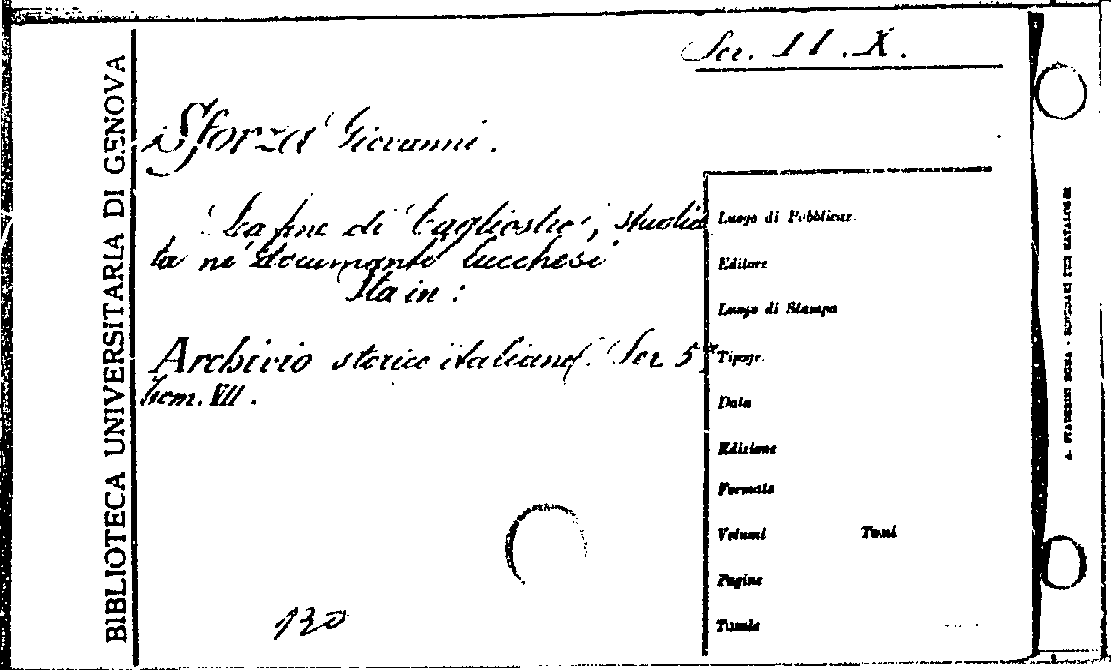 Ser. 11. X.
BIBLIOTECA UNIVERSITARIA DI GENOVA
Sforza Giovanni.
La fine di Cagliostro, studia
ta ne documenti lucchesi
Sta in :
Archivio storico italiano. Ser 5ª
tom. VII.
130
Luogo di Pubblicaz.
Editore
Luogo di Stampa
Tipogr.
Data
Edizione
Formato
Volumi Tomi
Pagine
Tavole